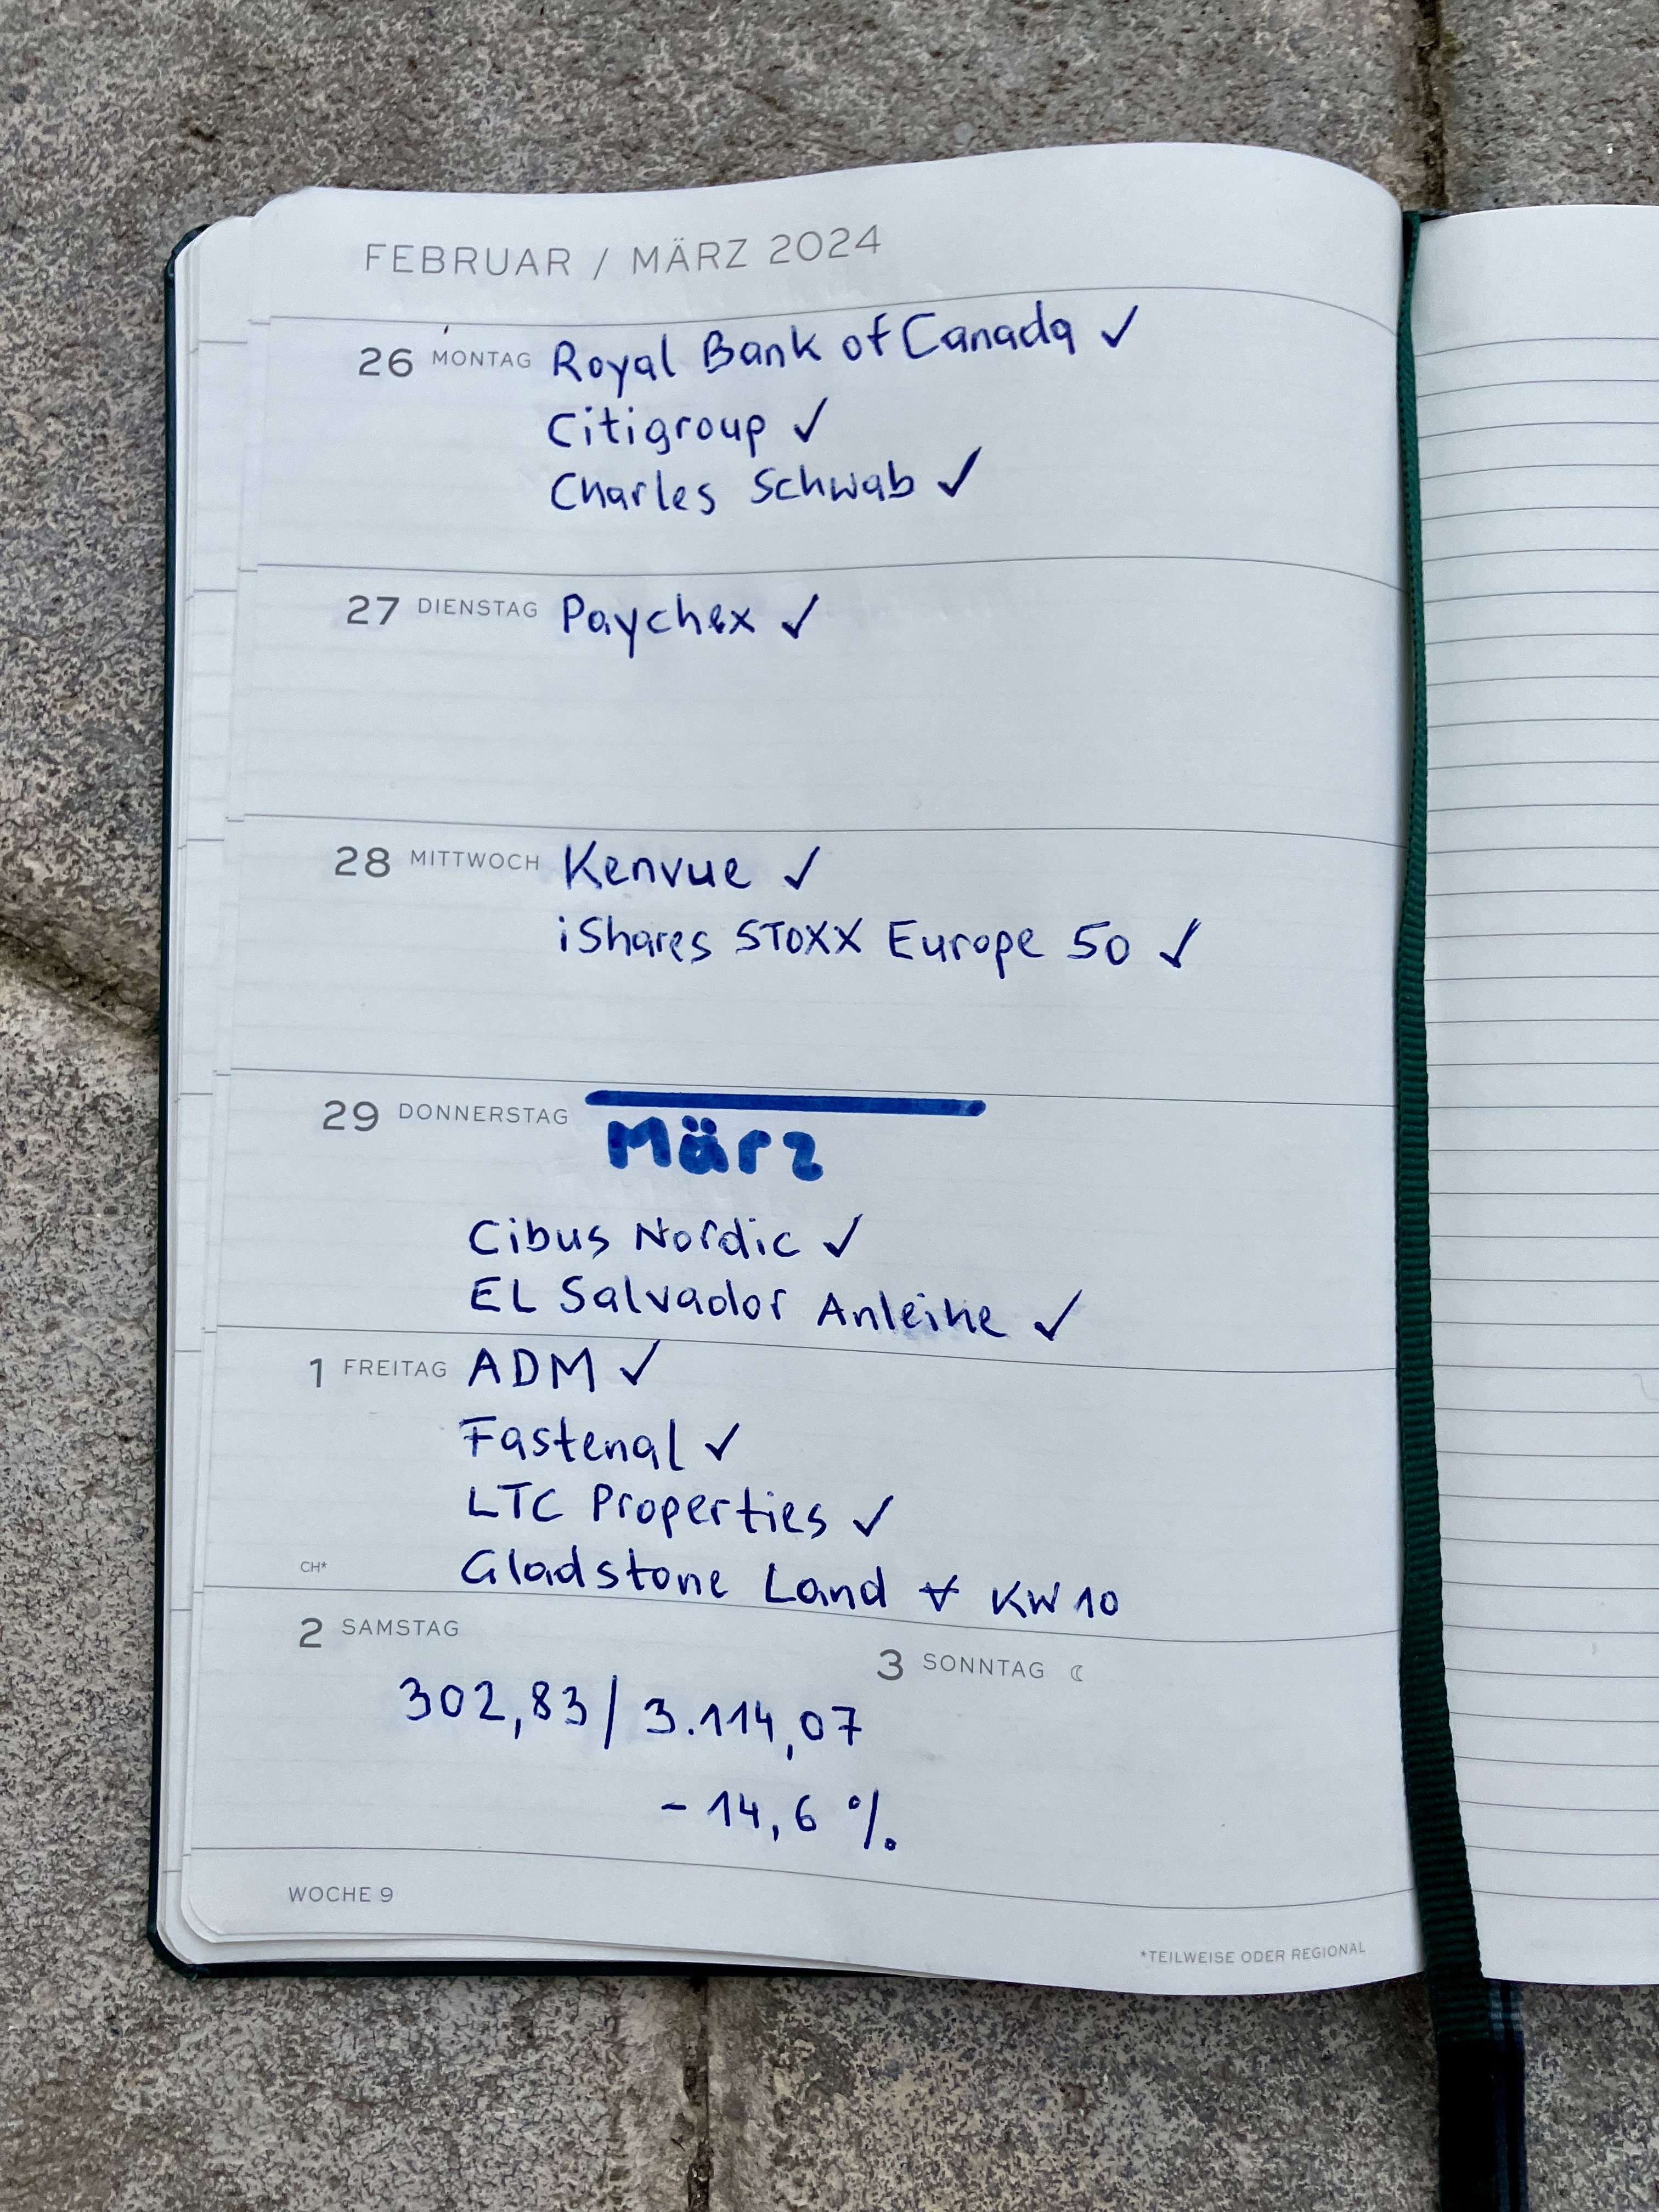 FEBRUAR / MÄRZ 2024
26 MONTAG Royal Bank of Canada ✓
Citigroup ✓
Charles Schwab ✓
27 DIENSTAG Paychex ✓
28 MITTWOCH Kenvue ✓
iShares STOXX Europe 50 ✓
29 DONNERSTAG
März
Cibus Nordic ✓
EL Salvador Anleihe ✓
1 FREITAG ADM ✓
Fastenal ✓
LTC Properties ✓
CH* Gladstone Land ✓ KW 10
2 SAMSTAG
3 SONNTAG ☾
302,83 / 3.114,07
- 14,6 %
WOCHE 9
*TEILWEISE ODER REGIONAL